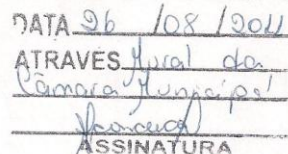 DATA 26 / 08 / 2011
ATRAVÉS Mural da
Câmara Municipal
ASSINATURA